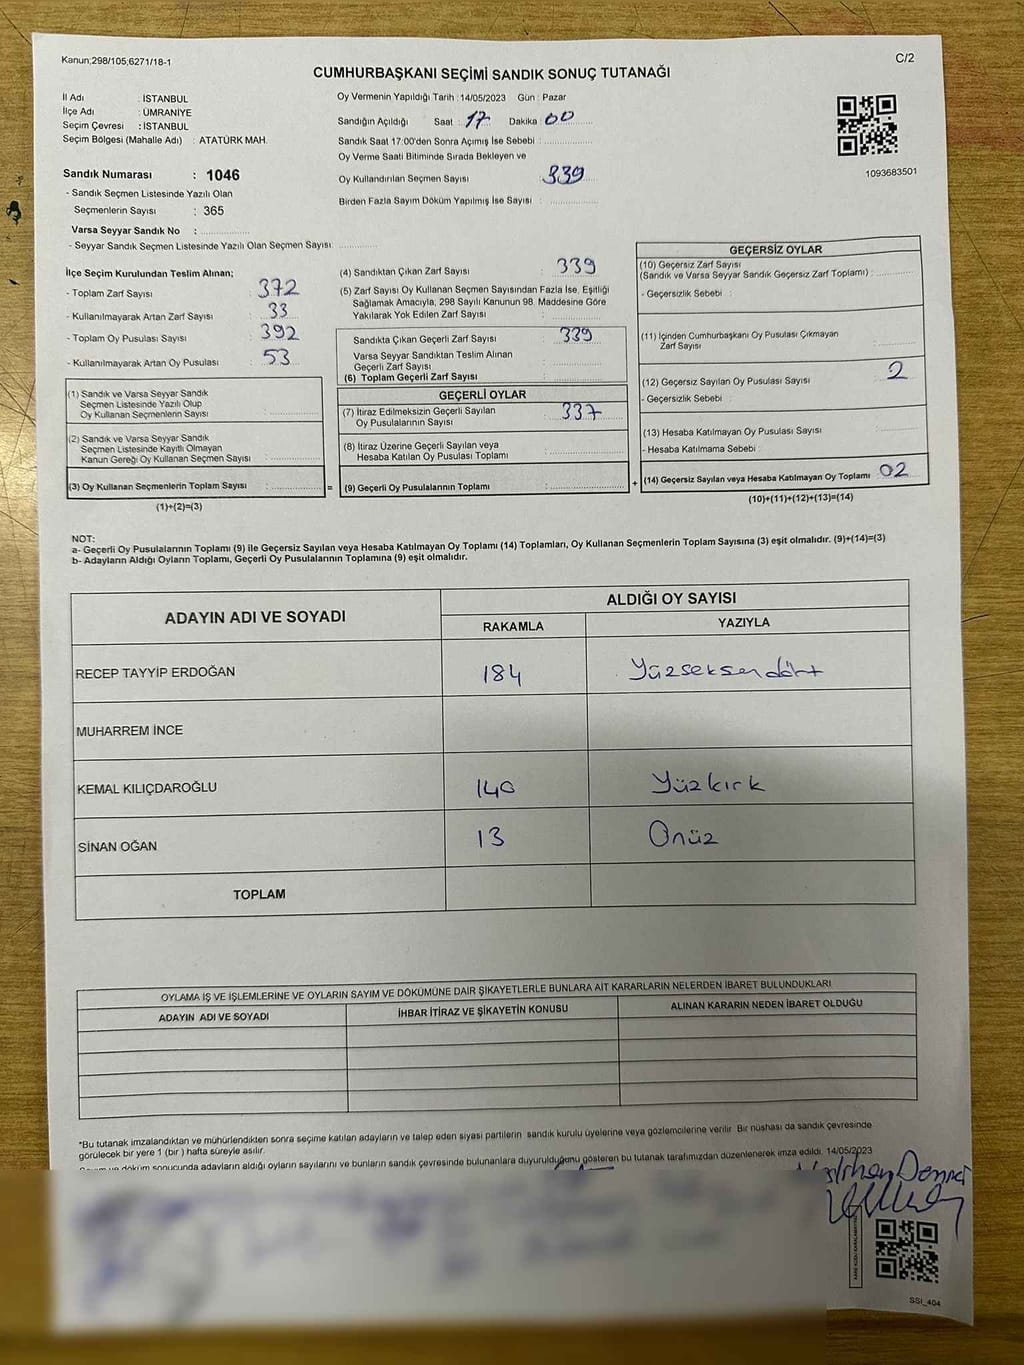 Kanun;298/105;6271/18-1
C/2
CUMHURBAŞKANI SEÇİMİ SANDIK SONUÇ TUTANAĞI
İl Adı : İSTANBUL
İlçe Adı : ÜMRANİYE
Seçim Çevresi : İSTANBUL
Seçim Bölgesi (Mahalle Adı) : ATATÜRK MAH.
Sandık Numarası : 1046
- Sandık Seçmen Listesinde Yazılı Olan
Seçmenlerin Sayısı : 365
Varsa Seyyar Sandık No :
- Seyyar Sandık Seçmen Listesinde Yazılı Olan Seçmen Sayısı:
Oy Vermenin Yapıldığı Tarih :14/05/2023 Gün : Pazar
Sandığın Açıldığı Saat : 17 Dakika : 00
Sandık Saat 17:00'den Sonra Açımış İse Sebebi :
Oy Verme Saati Bitiminde Sırada Bekleyen ve
Oy Kullandırılan Seçmen Sayısı : 339
Birden Fazla Sayım Döküm Yapılmış İse Sayısı :
1093683501
İlçe Seçim Kurulundan Teslim Alınan;
- Toplam Zarf Sayısı : 372
- Kullanılmayarak Artan Zarf Sayısı : 33
- Toplam Oy Pusulası Sayısı : 392
- Kullanılmayarak Artan Oy Pusulası : 53
(1) Sandık ve Varsa Seyyar Sandık
Seçmen Listesinde Yazılı Olup
Oy Kullanan Seçmenlerin Sayısı :
(2) Sandık ve Varsa Seyyar Sandık
Seçmen Listesinde Kayıtlı Olmayan
Kanun Gereği Oy Kullanan Seçmen Sayısı :
(3) Oy Kullanan Seçmenlerin Toplam Sayısı :
(1)+(2)=(3)
=
(4) Sandıktan Çıkan Zarf Sayısı : 339
(5) Zarf Sayısı Oy Kullanan Seçmen Sayısından Fazla İse, Eşitliği
Sağlamak Amacıyla, 298 Sayılı Kanunun 98. Maddesine Göre
Yakılarak Yok Edilen Zarf Sayısı :
Sandıkta Çıkan Geçerli Zarf Sayısı : 339
Varsa Seyyar Sandıktan Teslim Alınan
Geçerli Zarf Sayısı :
(6) Toplam Geçerli Zarf Sayısı :
GEÇERLİ OYLAR
(7) İtiraz Edilmeksizin Geçerli Sayılan
Oy Pusulalarının Sayısı : 337
(8) İtiraz Üzerine Geçerli Sayılan veya
Hesaba Katılan Oy Pusulası Toplamı :
(9) Geçerli Oy Pusulalarının Toplamı :
+
GEÇERSİZ OYLAR
(10) Geçersiz Zarf Sayısı
(Sandık ve Varsa Seyyar Sandık Geçersiz Zarf Toplamı) :
- Geçersizlik Sebebi :
(11) İçinden Cumhurbaşkanı Oy Pusulası Çıkmayan
Zarf Sayısı :
(12) Geçersiz Sayılan Oy Pusulası Sayısı : 2
- Geçersizlik Sebebi :
(13) Hesaba Katılmayan Oy Pusulası Sayısı :
- Hesaba Katılmama Sebebi :
(14) Geçersiz Sayılan veya Hesaba Katılmayan Oy Toplamı : 02
(10)+(11)+(12)+(13)=(14)
NOT:
a- Geçerli Oy Pusulalarının Toplamı (9) ile Geçersiz Sayılan veya Hesaba Katılmayan Oy Toplamı (14) Toplamları, Oy Kullanan Seçmenlerin Toplam Sayısına (3) eşit olmalıdır. (9)+(14)=(3)
b- Adayların Aldığı Oyların Toplamı, Geçerli Oy Pusulalarının Toplamına (9) eşit olmalıdır.
ADAYIN ADI VE SOYADI
ALDIĞI OY SAYISI
RAKAMLA YAZIYLA
RECEP TAYYİP ERDOĞAN 184 Yüzseksendört
MUHARREM İNCE
KEMAL KILIÇDAROĞLU 140 Yüzkırk
SİNAN OĞAN 13 Onüz
TOPLAM
OYLAMA İŞ VE İŞLEMLERİNE VE OYLARIN SAYIM VE DÖKÜMÜNE DAİR ŞİKAYETLERLE BUNLARA AİT KARARLARIN NELERDEN İBARET BULUNDUKLARI
ADAYIN ADI VE SOYADI İHBAR İTİRAZ VE ŞİKAYETİN KONUSU ALINAN KARARIN NEDEN İBARET OLDUĞU
*Bu tutanak imzalandıktan ve mühürlendikten sonra seçime katılan adayların ve talep eden siyasi partilerin sandık kurulu üyelerine veya gözlemcilerine verilir. Bir nüshası da sandık çevresinde
görülecek bir yere 1 (bir) hafta süreyle asılır.
döküm sonucunda adayların aldığı oyların sayılarını ve bunların sandık çevresinde bulunanlara duyurulduğunu gösteren bu tutanak tarafımızdan düzenlenerek imza edildi. 14/05/2023
SSİ_404